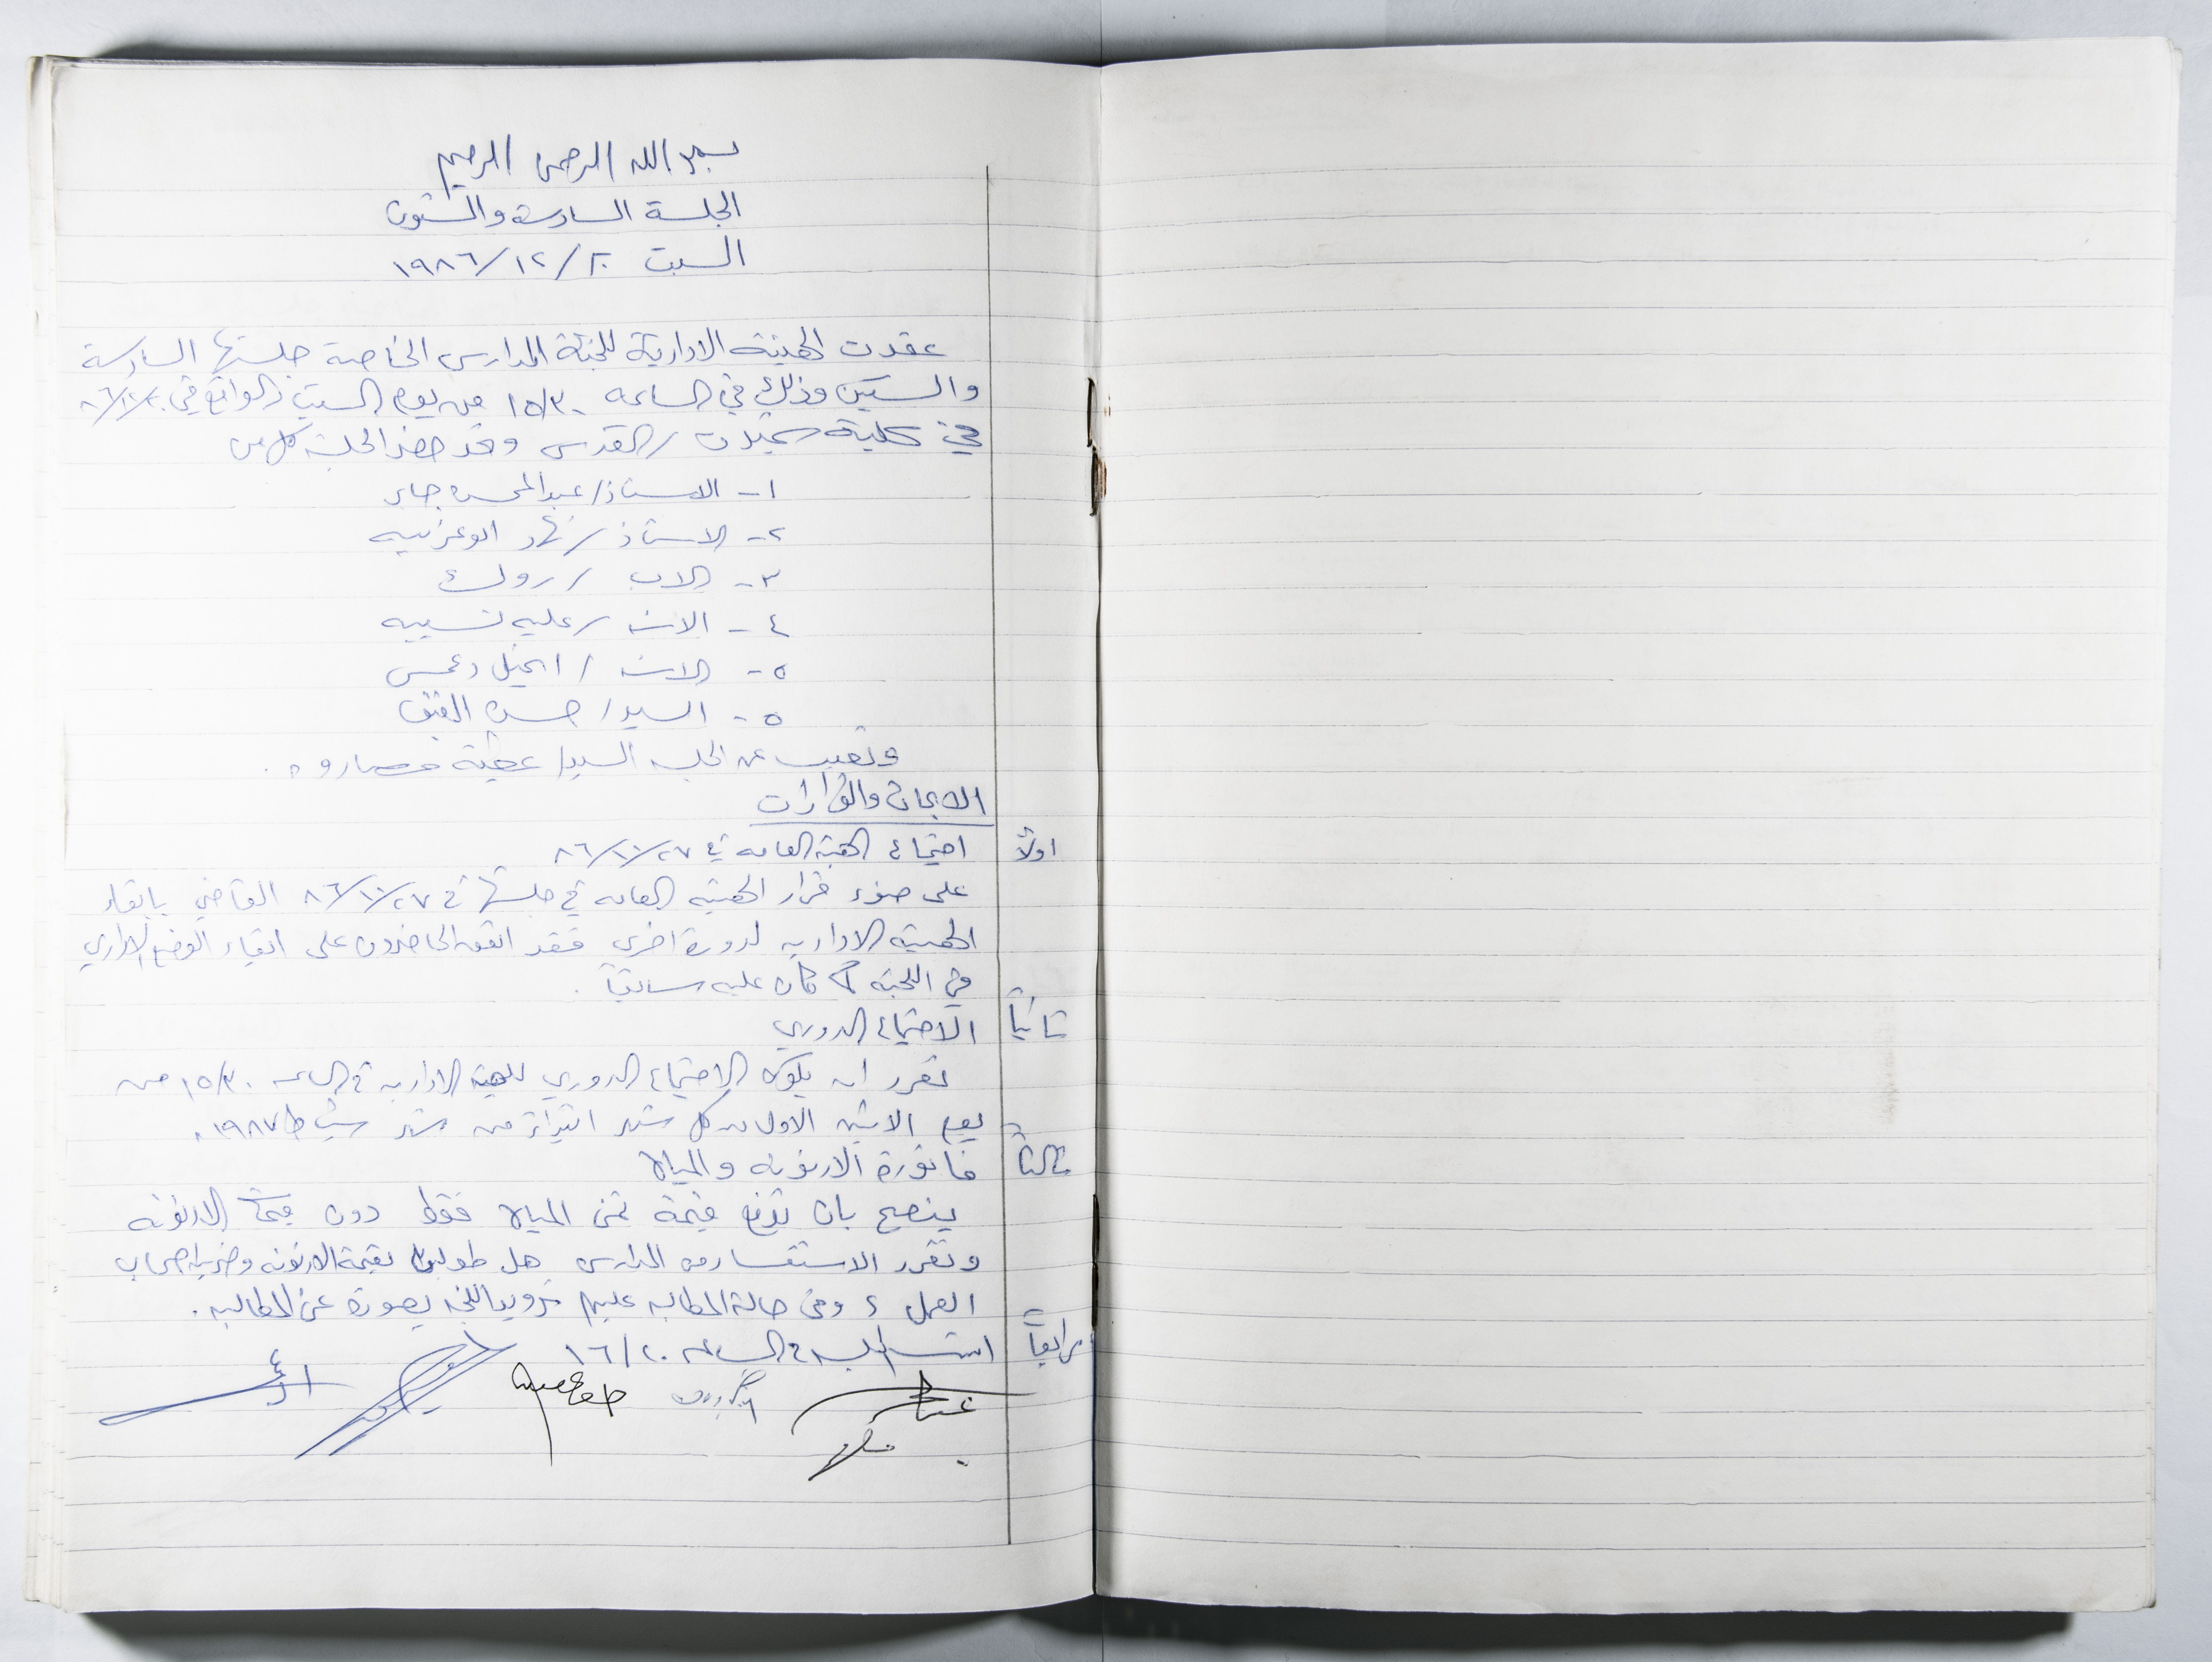 بسم الله الرحمن الرحيم
الجلسة السادسة والستون
السبت ٢٠/١٢/١٩٨٦
عقدت الهيئة الادارية للجنة المدارس الخاصة جلستها السادسة
والستين وذلك في الساعه ١٥/٣٠ من يوم السبت الواقع في
في كلية شميدت / القدس وقد حضر الجلسة كل من
١- الاستاذ/ عبد المحسن جابر
٢- الاستاذ / نهاد ابو غربيه
٣- الاب / رولى
٤- الانسه / عليه نسيبه
٥- الانسه / انجيل دعمس
٥- السيد / حسن القيق
وتغيب عن الجلسه السيد/ عطية .
الابحاث والقرارات
اولاً اجتماع الهيئة العامه في
على ضوء قرار الهيئه العامه في جلستها في القاضي بابقاء
الهيئه الاداريه لدورة اخرى فقد اتفق الحاضرون على ابقاء الوضع الاداري
في اللجنه كما كان عليه سابقاً .
ثانياً الاجتماع الدوري
تقرر ان يكون الاجتماع الدوري للهيئه الاداريه في الساعه ١٥/٣٠ من
يوم الاثنين الاول من كل شهر ابتداءً من شهر شباط ١٩٨٧ .
ثالثاً فاتورة الارنونه والمياه
ينصح بان تدفع قيمة ثمن المياه فقط دون قيمة الارنونه
وتقرر الاستفسار من المدارس هل طولبوا بقيمة الارنونه وضريبة اصحاب
العمل ؟ وفي حالة المطالبه عليهم تزويد اللجنه بصورة عن المطالبه .
رابعاً انتهت الجلسه في الساعه ١٦/٢٠